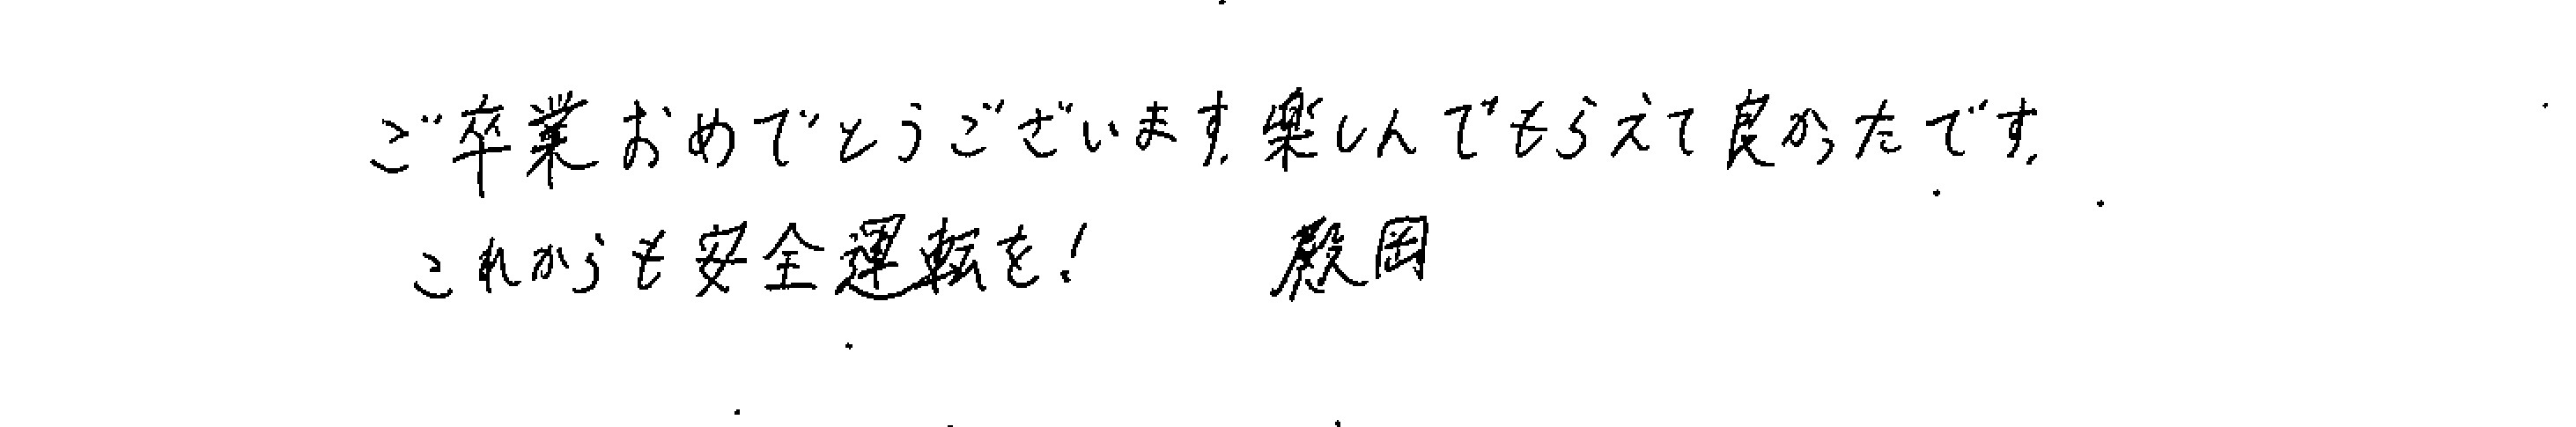 ご卒業おめでとうございます。楽しんでもらえて良かったです。
これからも安全運転を！ 殿岡